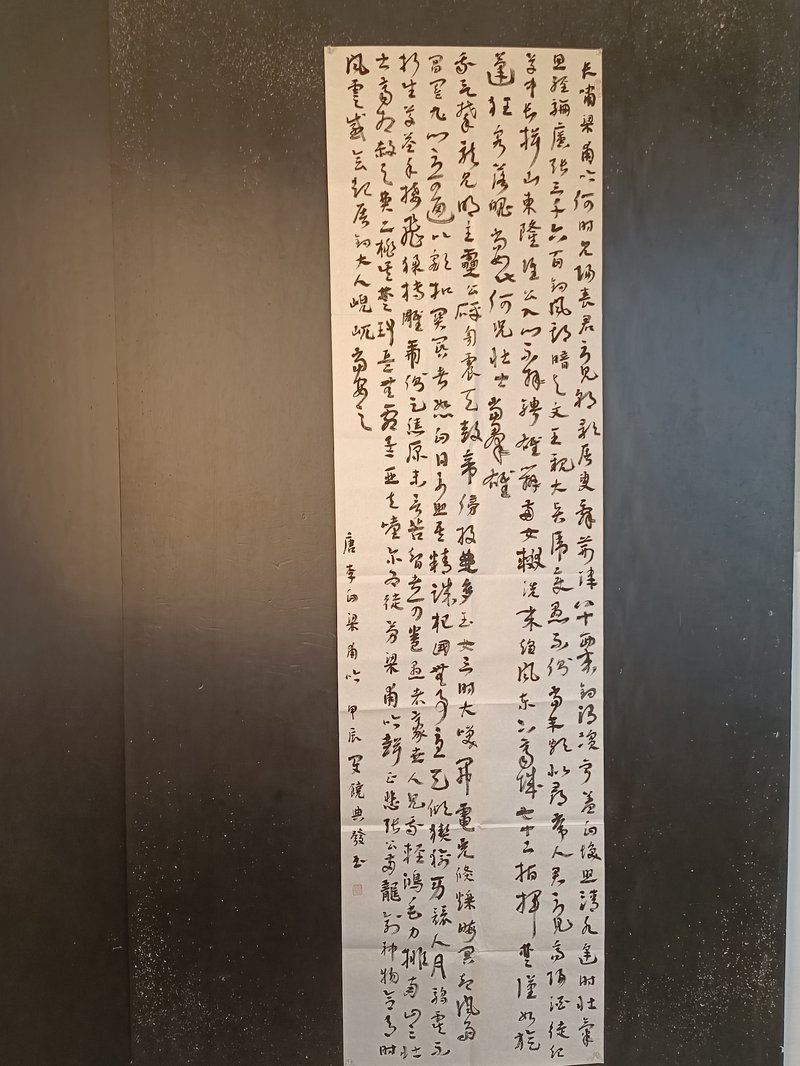 長嘯梁甫吟何時見陽春君不見朝歌屠叟辭棘津八十西來釣渭濱寧羞白髮照清水逢時壯氣
思經綸廣張三千六百釣風期暗與文王親大賢虎變愚不測當年頗似尋常人君不見高陽酒徒起
草中長揖山東隆準公入門不拜騁雄辯兩女輟洗來趨風東下齊城七十二指揮楚漢如旋
蓬狂客落魄尚如此何況壯士當群雄
我欲攀龍見明主雷公砰訇震天鼓帝傍投壺多玉女三時大笑開電光倏爍晦冥起風雨
閶闔九門不可通以額扣關閽者怒白日不照吾精誠杞國無事憂天傾猰貐磨牙競人肉騶虞不
折生草莖手接飛猱搏雕虎側足焦原未言苦智者可卷愚者豪世人見我輕鴻毛力排南山三壯
士齊相殺之費二桃吳楚弄兵無劇孟亞夫咍爾為徒勞梁甫吟聲正悲張公兩龍劍神物合有時
風雲感會起屠釣大人峴屼當安之
唐李白梁甫吟 甲辰 夏 饒典發書